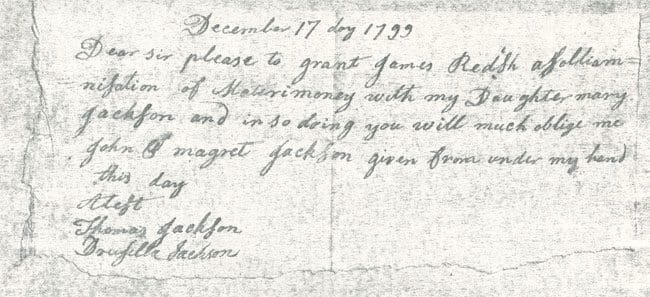 December 17 day 1799
Dear sir please to grant James Redish a Solliam=
nisation of Materimoney with my Daughter mary
Jackson and in so doing you will much oblige me
John & magret Jackson given from under my hand
this day
Atest
Thomas Jackson
Drusilla Jackson